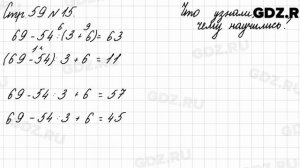 Стр 59 № 15.
6 9
69 - 54 : (3 + 6) = 63
1 2
(69 - 54) : 3 + 6 = 11
69 - 54 : 3 + 6 = 57
69 - 54 : 3 + 6 = 45
Что узнали,
чему научились?
GDZ.RU